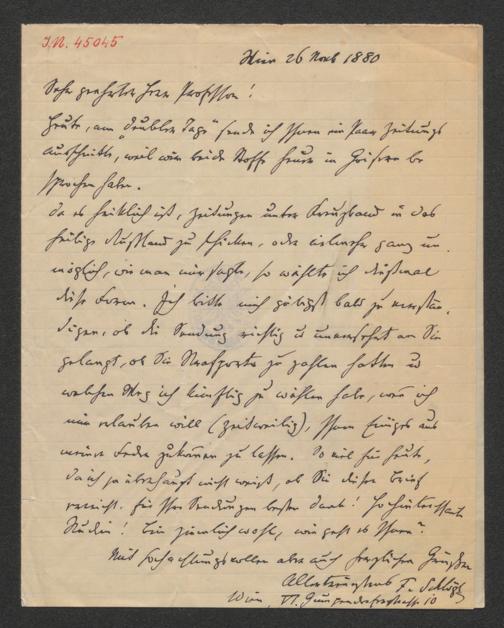 I.N. 45045
Wien 26 Nov 1880
Sehr geehrter Herr Professor!
Heute, am "Tage" sende ich Ihnen ein Paar Zeitungs
ausschnitte, weil wir beide Stoffe heuer in be
sprochen haben.
Da es heiklich ist, Zeitungen unter Kreuzband in das
heilige Rußland zu schicken, oder vielmehr ganz un
möglich, wie man mir sagte, so wählte ich dießmal
diese Form. Ich bitte mich gütigst bald zu verstän
digen, ob die Sendung richtig u unversehrt an Sie
gelangt, ob Sie Strafporto zu zahlen hatten u
welchen Weg ich künftig zu wählen habe, wenn ich
mir erlauben will (zeitweilig), Ihnen Einiges aus
meiner Feder zukommen zu lassen. So viel für heute,
da ich ja überhaupt nicht weiß, ob Sie dieser Brief
erreicht. Für Ihre Sendungen besten Dank! Hochinteressante
Studien! Bin ziemlich wohl, wie geht es Ihnen?
Mit hochachtungsvollen aber auch herzlichen Grüßen
F. Schlögl
Wien, VI. Gumpendorferstraße 10